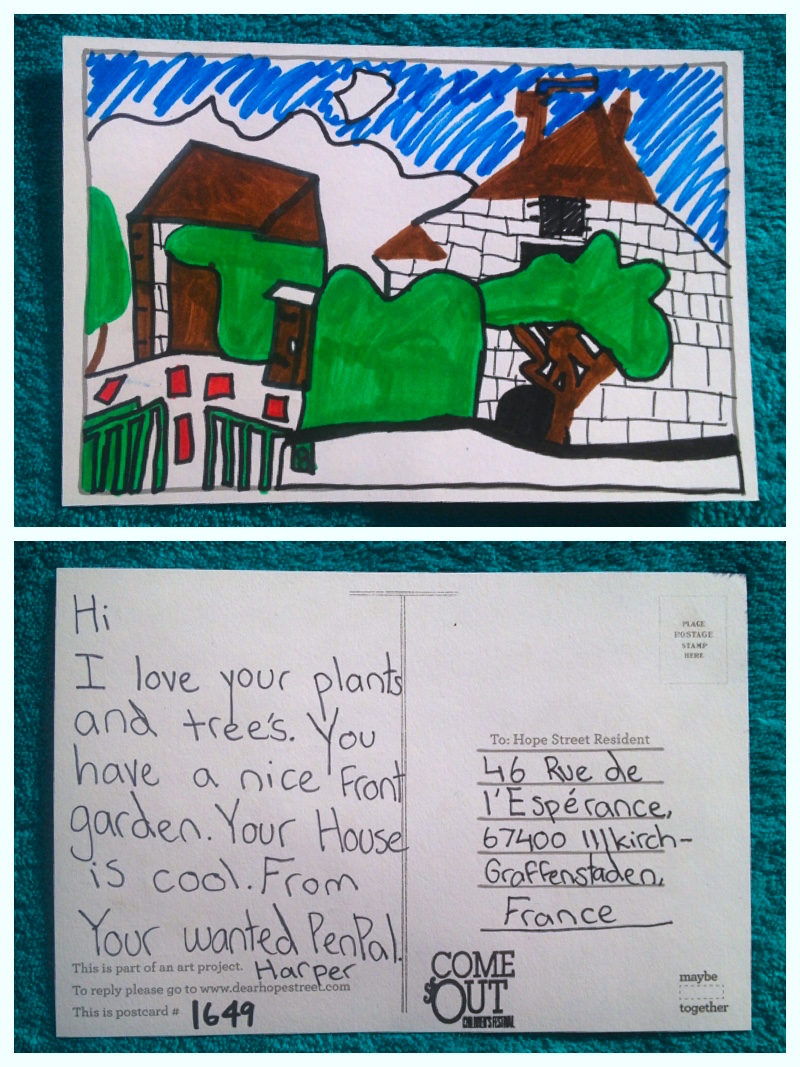 Hi
I love your plants
and tree's. You
have a nice Front
garden. Your House
is cool. From
Your wanted PenPal.
Harper
This is part of an art project.
To reply please go to www.dearhopestreet.com
This is postcard # 1649
PLACE
POSTAGE
STAMP
HERE
To: Hope Street Resident
46 Rue de
l'Espérance,
67400 Illkirch-
Graffenstaden,
France
COME
OUT
CHILDREN'S FESTIVAL
maybe
together